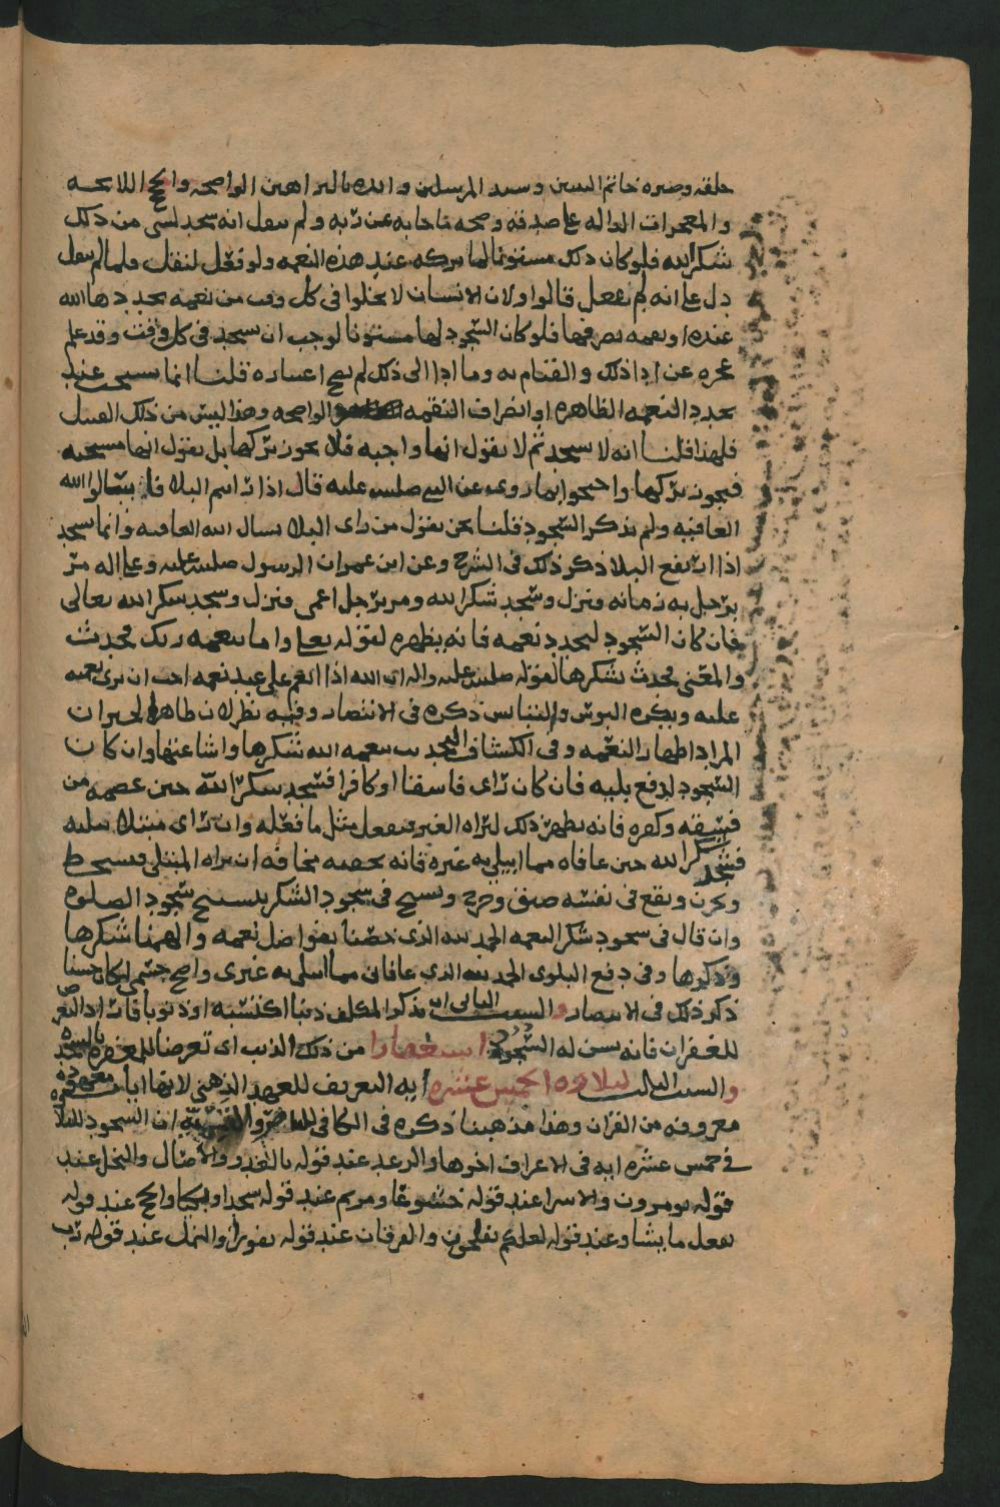 خلقه وصيره خاتم النبيين وسيد المرسلين وايده بالبراهين الواضحه والحجج اللايحه
والمعجزات الداله على صدقه وصحه ما جا به عن ربه ولم ينقل انه سجد لشى من ذلك
شكرا لله فلو كان ذلك مسنونا لما تركه عند هذه النعمه ولو فعل لنقل فلما لم ينقل
دل على انه لم يفعل قالوا ولان الانسان لا يخلوا فى كل وقت من نعمه يجددها الله
عنده او نقمه يصرفها فلو كان السجود لها مسنونا لوجب ان يسجد فى كل وقت وقد علم
عجزه عن ادا ذلك والقيام به وما ادا الى ذلك لم يصح اعتباره قلنا انما يستحب عند
تجدد النعمه الظاهره او انصراف النقمه الواضحه وهذا ليس من ذلك القبيل
فلهذا قلنا انه لا يسجد ثم لا نقول انها واجبه فلا يجوز تركها بل نقول انها مستحبه
فيجوز تركها واحتجوا بما روى عن النبى صلى الله عليه قال اذا رايتم البلا فاسالوا الله
العافيه ولم يذكر السجود قلنا نحن نقول من راى البلا يسال الله العافيه وانما يسجد
اذا ارتفع البلا ذكر ذلك فى الشرح وعن ابن عمر ان الرسول صلى الله عليه وعلى اله مر
برجل به زمانه فنزل وسجد شكرا لله ومر برجل اعمى فنزل وسجد شكرا لله تعالى
فان كان السجود لتجدد نعمه فانه يظهره لقوله تعالى واما بنعمه ربك فحدث
والمعنى فحدث بشكرها لقوله صلى الله عليه واله ان الله اذا انعم على عبد نعمه احب ان ترى نعمته
عليه ويكره البوس والتبايس ذكره فى الانتصار وفيه نظر لان ظاهر الخبر ان
المراد اظهار النعمه وفى الكشاف التحديث بنعمه الله شكرها واشاعتها وان كان
السجود لدفع بليه فان كان راى فاسقا او كافرا فسجد شكرا لله حين عصمه من
فسقه وكفره فانه يظهر ذلك ليراه الغير فيفعل مثل ما فعله وان راى مبتلا ببليه
فسجد شكرا لله حين عافاه مما ابتلى به غيره فانه يخفيه مخافه ان يراه المبتلى فيسخط
ويحزن ويقع فى نفسه ضيق وحرج ويسبح فى سجود الشكر بتسبيح سجود الصلوه
وان قال فى سجود شكر النعمه الحمد لله الذى خصنا بفواضل نعمه والهمنا شكرها
وذكرها وفى دفع البلوى الحمد لله الذى عافانى مما ابتلى به غيرى واصح جسمى لكان حسنا
ذكر ذلك فى الانتصار والسبب الثانى ان يذكر المكلف ذنبا اكتسبه او ذنوبا فاراد التعرض
للغفران فانه يسن له السجود استغفارا من ذلك الذنب اى تعرضا للمغفره بالسجده
والسبب الثالث لتلاوه الخمس عشره ايه التعريف للعهد الذهنى لانها ايات معهوده
معروفه من القران وهذا مذهبنا ذكره فى الكافى ان السجود للتلاوه
فى خمس عشره ايه فى الاعراف اخرها والرعد عند قوله بالغدو والاصال والنحل عند
قوله يومرون والاسرا عند قوله خشوعا ومريم عند قوله سجدا وبكيا والحج عند قوله
يفعل ما يشا وعند قوله لعلكم تفلحون والفرقان عند قوله نفورا والنمل عند قوله رب